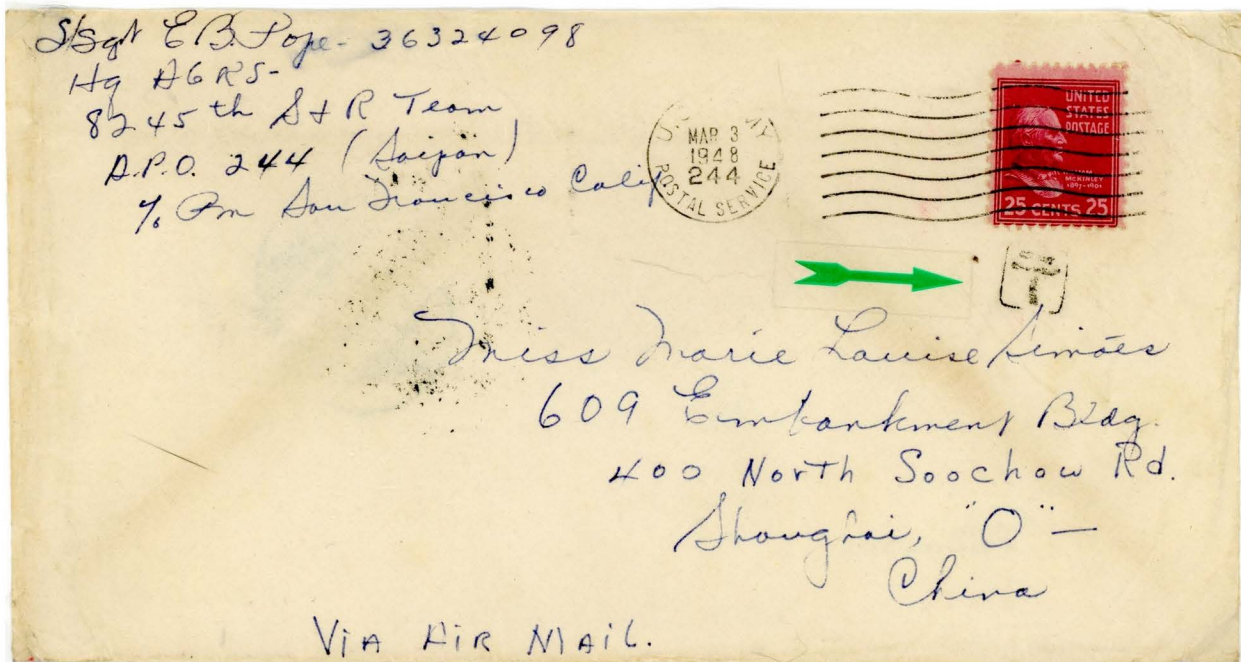 S/Sgt E B. Pope - 36324098
Hq AGRS-
8245th S & R Team
A.P.O. 244 (Saipan)
% Pm San Francisco Calif
MAR 3
1948
244
POSTAL SERVICE
UNITED
STATES
POSTAGE
MCKINLEY
1897-1901
25 CENTS 25
T
Miss Marie Louise Simões
609 Embankment Bldg.
400 North Soochow Rd.
Shanghai, "O" —
China
VIA AIR MAIL.